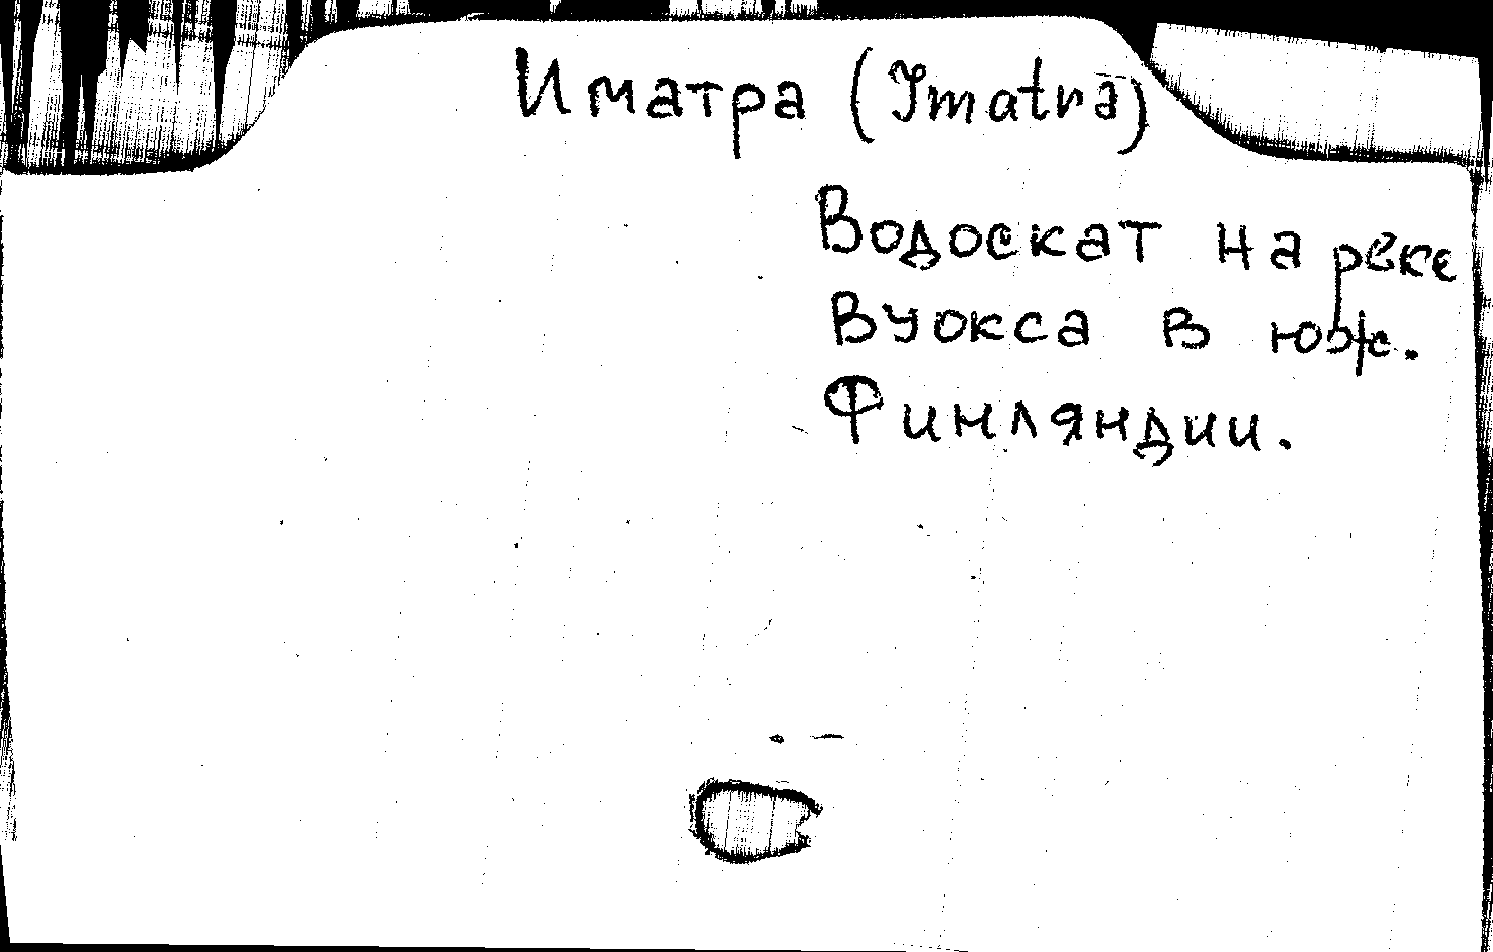 Иматра (Imatra)
Водоскат на реке
Вуокса в юж.
Финляндии.